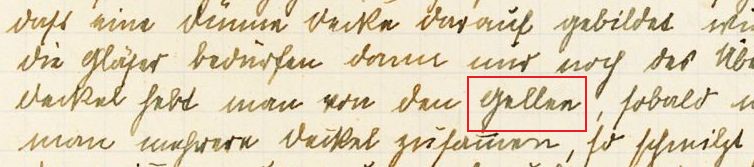 daß eine dünne Decke darauf gebildet
die Gläser bedürfen dann nur noch des Übe
Deckel hebt man von den Gellen, sobald
man mehrere Deckel zusam̅en, so schmilzt